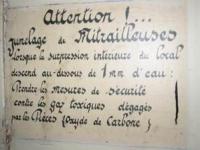 Attention !...
Jumelage de Mitrailleuses
lorsque la surpression intérieure du local
descend au-dessous de 1 mm d'eau :
Prendre les mesures de sécurité
contre les gaz toxiques dégagés
par les Pièces (Oxyde de Carbone)